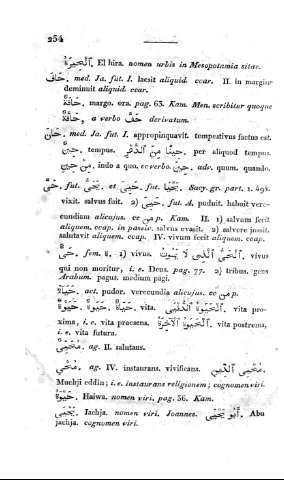 254
اَلْحِيرَةُ. El hira. nomen urbis in Mesopotamia sitae.
حَافَ. med. Ja. fut. I. laesit aliquid. ccar. II. in margine
deminuit aliquid. ccar.
حَافَةٌ. margo. ora. pag. 63. Kam. Men. scribitur quoque
حَافَّةٌ, a verbo حَفَّ derivatum.
حَانَ. med. Ja. fut. I. appropinquavit. tempestivus factus est.
حِينٌ. tempus. حِينًا مِنَ الدَّهْرِ. per aliquod tempus.
مِنْ حِينٍ. inde a quo. cc verbo. حِينَ. adv. quum. quando.
حَىَّ. fut. يَحَىُّ. et حَيِىَ. fut. يَحْيَا. Sacy. gr. part. 1. 494.
vixit. salvus fuit. 2) حَيِىَ. fut. A. puduit. habuit vere-
cundiam alicujus. cc مِن p. Kam. II. 1) salvum fecit
aliquem. ccap. in passiv. salvus evasit. 2) salvere jussit.
salutavit aliquem. ccap. IV. vivum fecit aliquem. ccap.
حَىٌّ. fem. ة. 1) vivus. اَلْحَىُّ الَّذِى لَا يَمُوتُ. vivus
qui non moritur, i. e. Deus. pag. 77. 2) tribus. gens
Arabum. pagus. medium pagi.
حَيَاءٌ. act. pudor. verecundia alicujus. cc مِن p.
حَيٰوةٌ. حَيَاةٌ. حَيٰوةٌ. vita. اَلْحَيٰوةُ الدُّنْيَى. vita pro-
xima, i. e. vita praesens. اَلْحَيٰوةُ الْآخِرَةُ. vita postrema,
i. e. vita futura.
مُحَيِّى. ag. II. salutans.
مُحْيِى. ag. IV. instaurans. vivificans. مُحْيِى الدِّينِ.
Muchji eddin; i. e. instaurans religionem; cognomen viri.
حَيْوَةُ. Haiwa. nomen viri. pag. 56. Kam.
يَحْيَى. Jachja. nomen viri. Joannes. أَبُو يَحْيَى. Abu
jachja. cognomen viri.